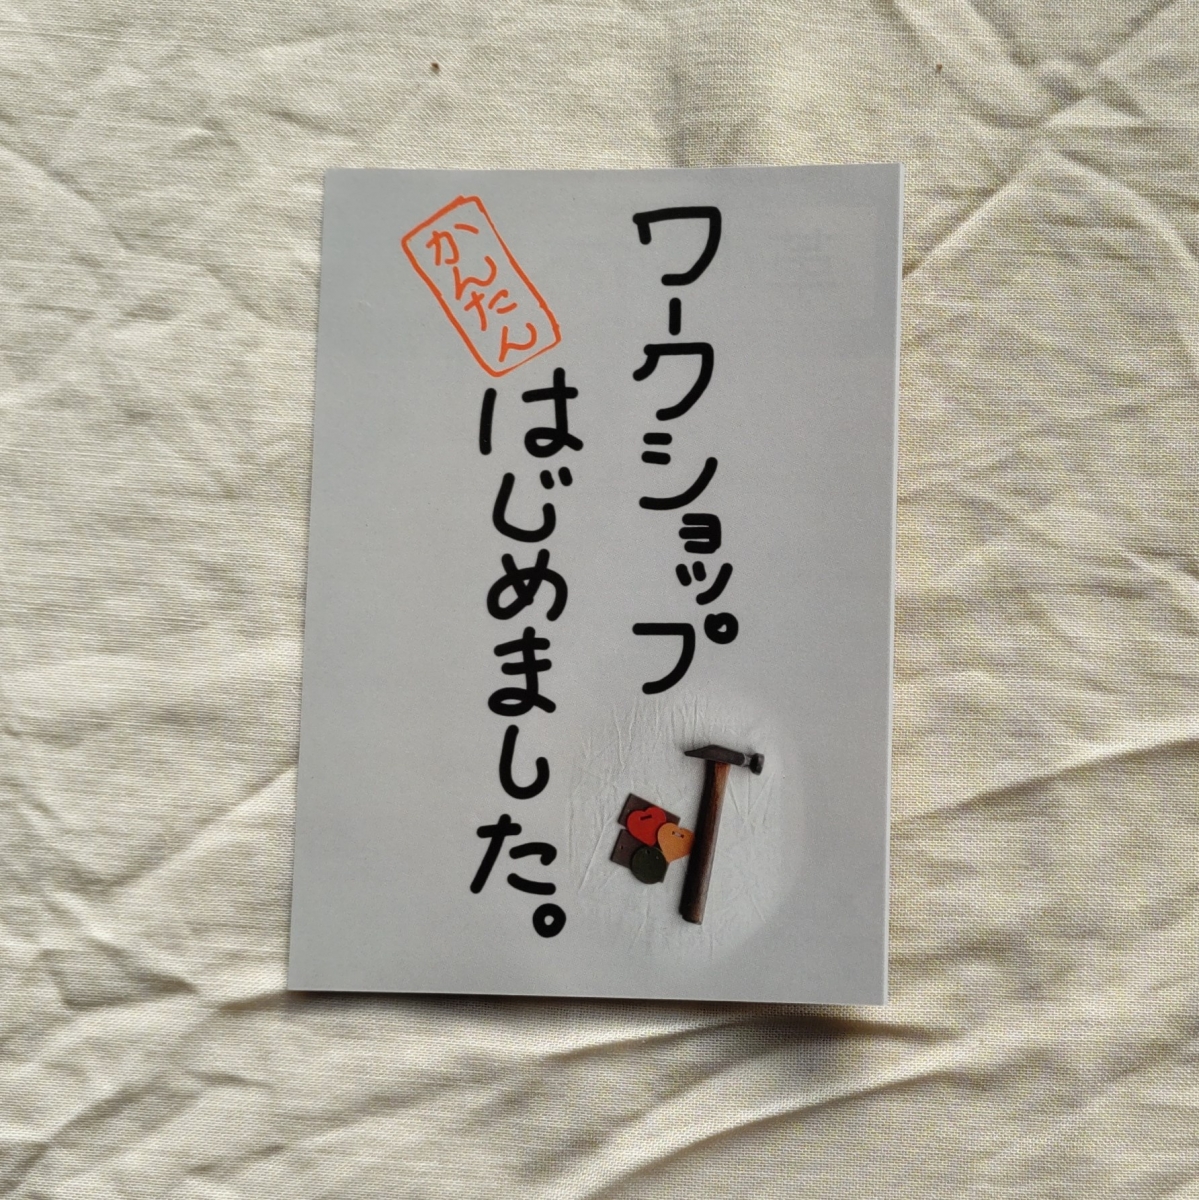 ワークショップ
かんたん
はじめました。